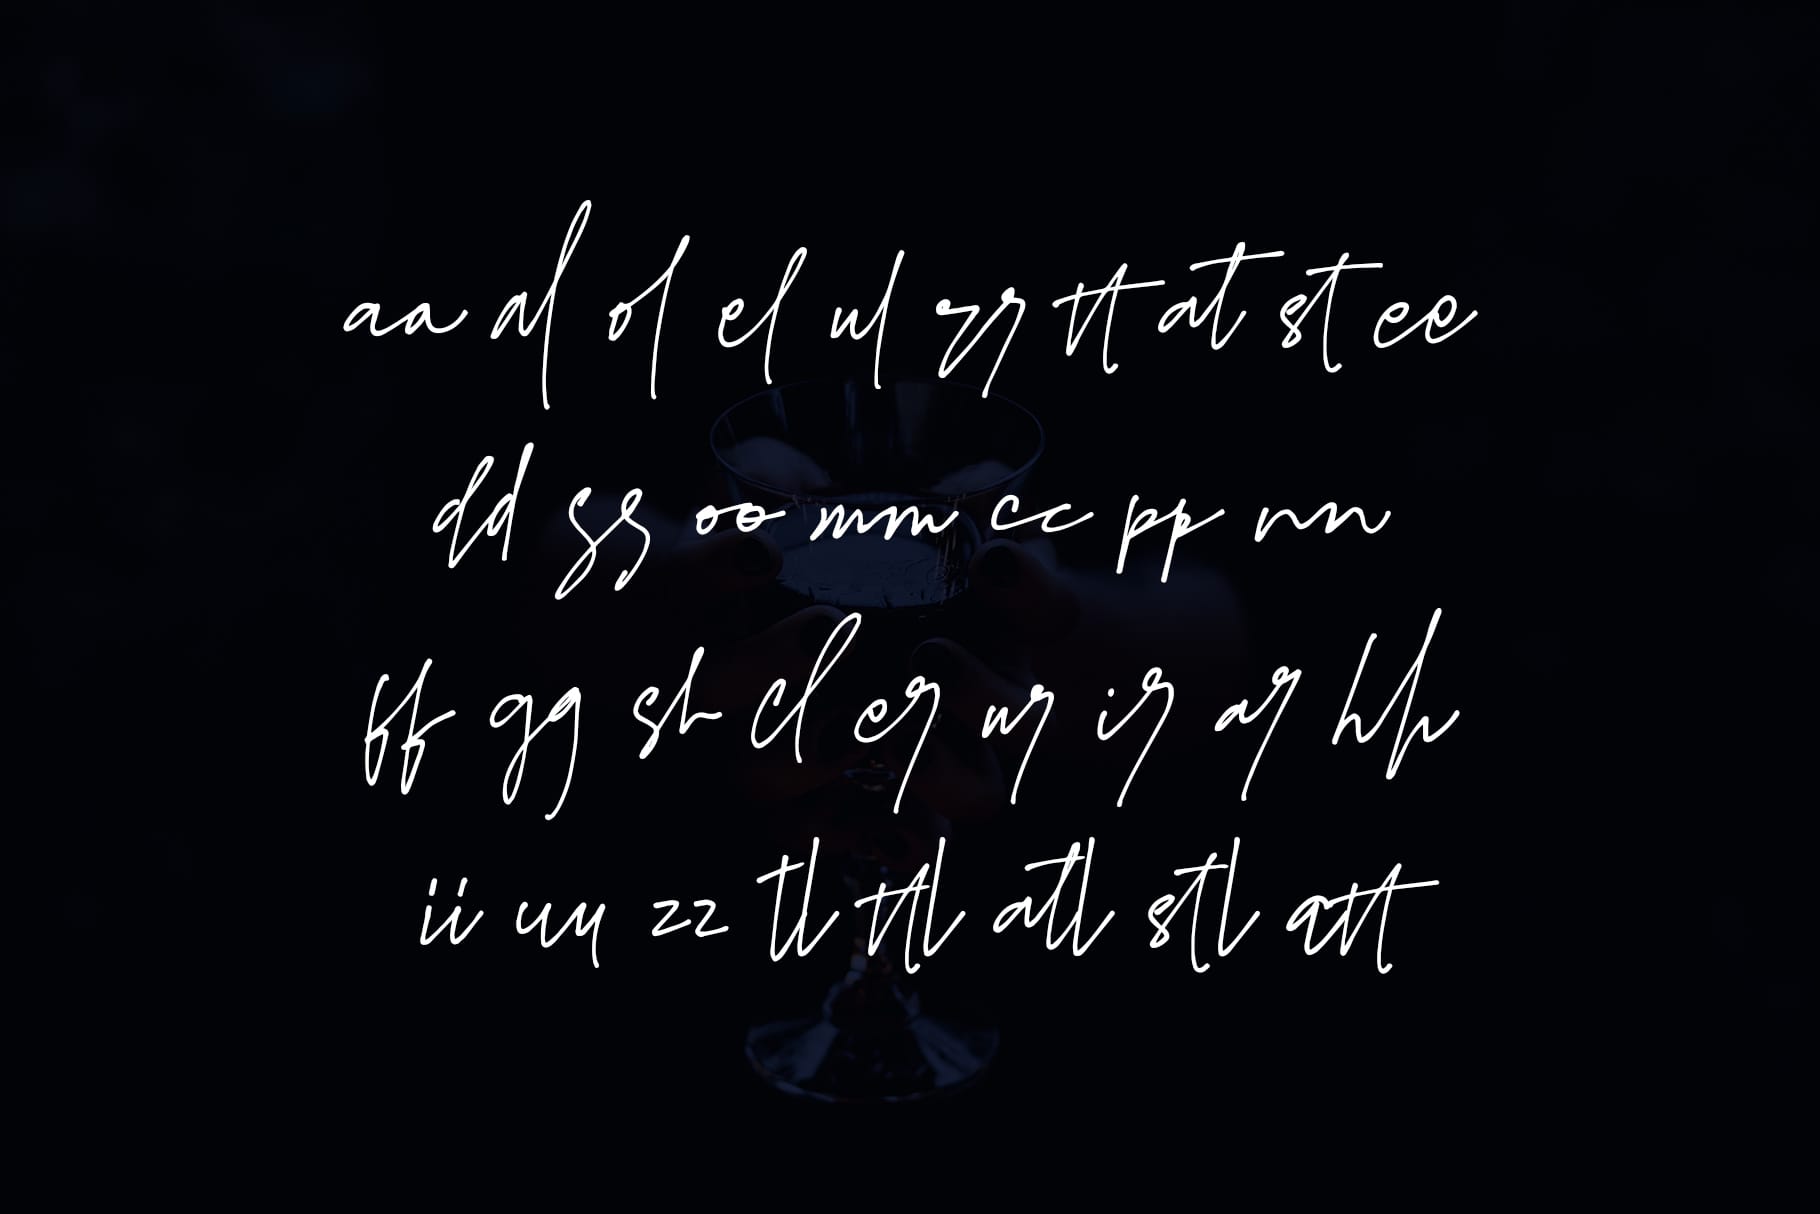 aa al ol el ul rr tt at st ee
dd ss oo mm cc pp nn
ff gg sh cl er ur ir ar hh
ii uu zz tl ttl atl stl att